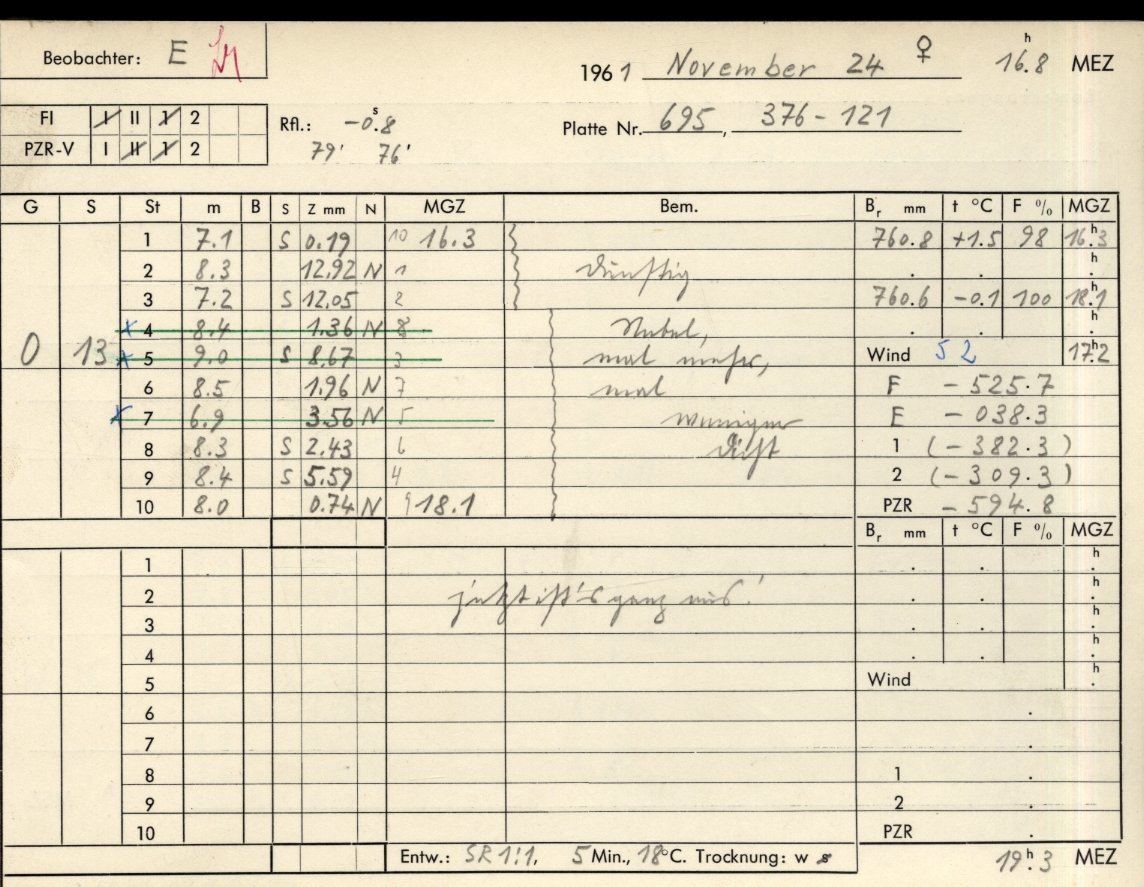 Beobachter: E
1961 November 24 ♀ 16.8ʰ MEZ
FI I II 1 2
PZR-V I II 1 2
Rfl.: -0ˢ.8
79' 76'
Platte Nr. 695, 376-121
G S St m B S Z mm N MGZ Bem. Bᵣ mm t °C F % MGZ
0 13
1 7.1 S 0.19 10 16.3 760.8 +1.5 98 16.3ʰ
2 8.3 12.92 N 1 dunstig . . ʰ.
3 7.2 S 12.05 2 760.6 -0.1 100 18.1ʰ
x 4 8.4 1.36 N 8 Nebel, . . ʰ.
x 5 9.0 S 8.67 3 mal mehr, Wind S 2 17.2ʰ
6 8.5 1.96 N 7 mal F -525.7
x 7 6.9 3.56 N 5 weniger E -038.3
8 8.3 S 2.43 6 dicht 1 (-382.3)
9 8.4 S 5.59 4 2 (-309.3)
10 8.0 0.74 N 9 18.1 PZR -594.8
Bᵣ mm t °C F % MGZ
1 . . ʰ.
2 jetzt ist's ganz aus! . . ʰ.
3 . . ʰ.
4 . . ʰ.
5 Wind ʰ.
6 .
7 .
8 1 .
9 2 .
10 PZR .
Entw.: SR 1:1, 5 Min., 18°C. Trocknung: w s
19.3ʰ MEZ